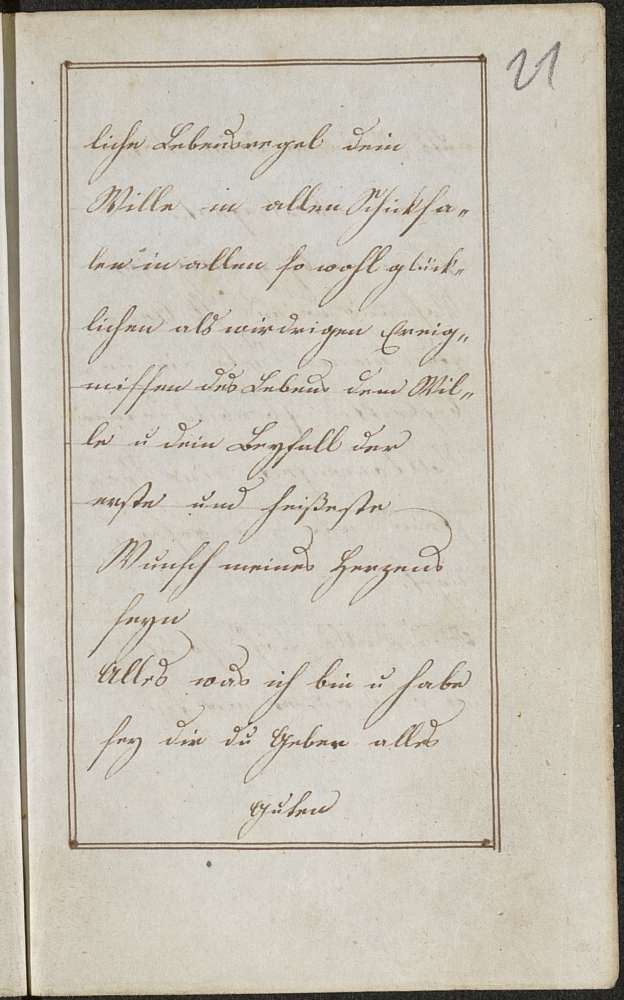 21
liche Lebensregel dein
Wille in allen Schicksa„
len in allen so wohl glück„
lichen als wiedrigen Ereig„
nissen des Lebens dein Wil„
le u dein Beyfall der
erste und heißeste
Wunsch meines Herzens
seyn
Alles was ich bin u habe
sey dir du Geber alles
Guten